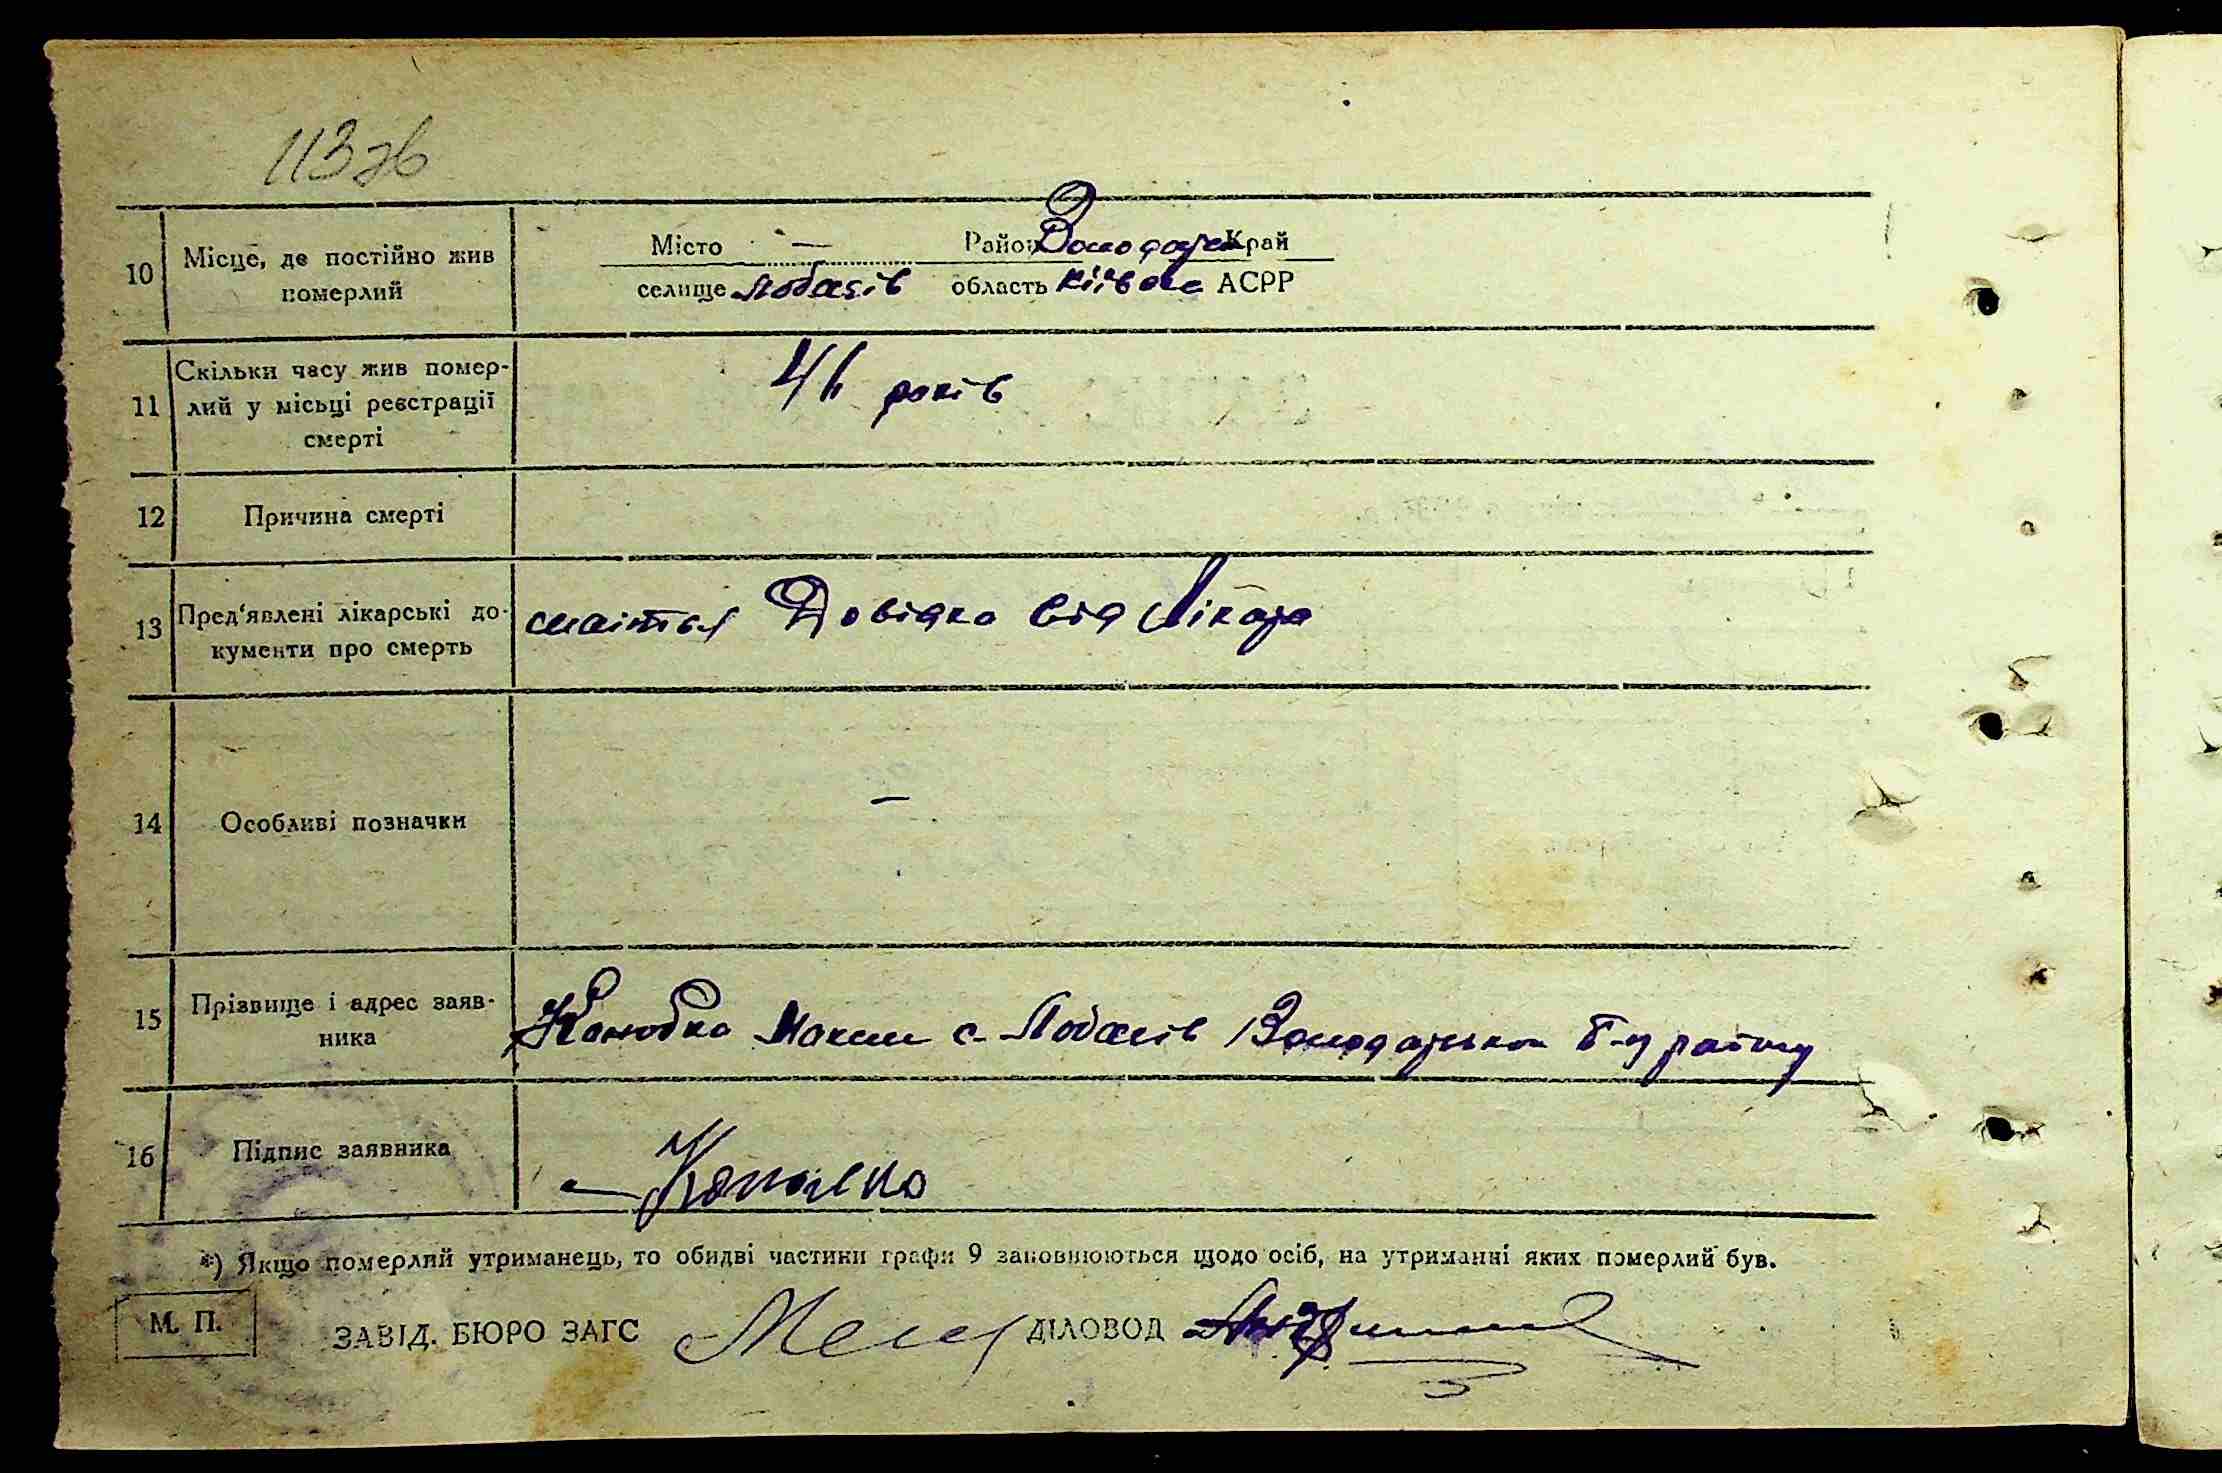 113зв
10 Місце, де постійно жив померлий
Місто — Район Володарс Край
селище Лобачів область Київська АСРР
11 Скільки часу жив помер-
лий у місьці реєстрації
смерті
років
12 Причина смерті
13 Пред'явлені лікарські до-
кументи про смерть
Довідка від лікаря
14 Особливі позначки
—
15 Прізвище і адрес заяв-
ника
Максим с. Лобачів Володарського району
16 Підпис заявника
*) Якщо померлий утриманець, то обидві частини графи 9 заповнюються щодо осіб, на утриманні яких померлий був.
М. П.
ЗАВІД. БЮРО ЗАГС ДІЛОВОД